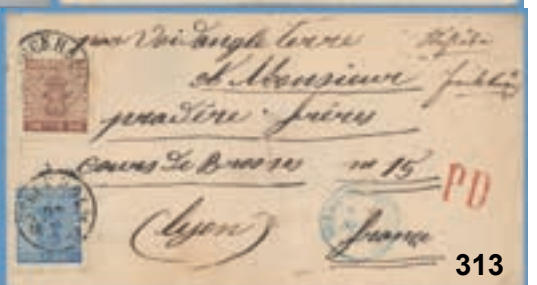 par Voi d'angle terre
A Monsieur
pradère frères
cours De Brosses n° 15
PD
(lyon) france
313